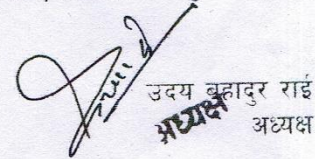 उदय बहादुर राई
अध्यक्ष
अध्यक्ष